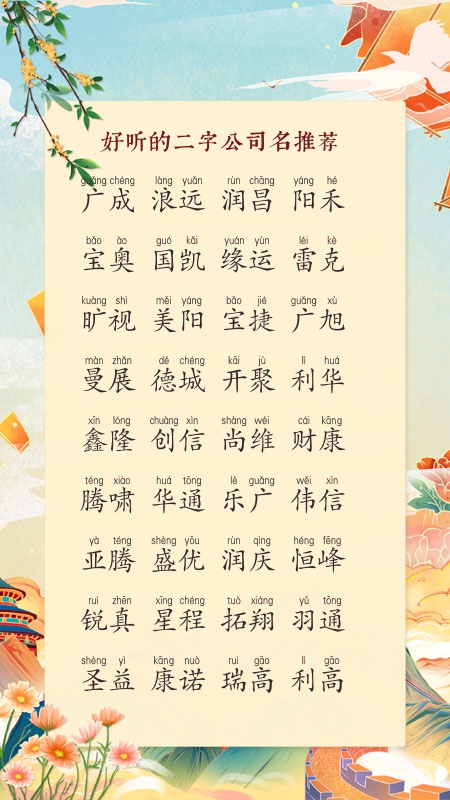 好听的二字公司名推荐
guǎng chéng làng yuǎn rùn chāng yáng hé
广成 浪远 润昌 阳禾
bǎo ào guó kǎi yuán yùn léi kè
宝奥 国凯 缘运 雷克
kuàng shì měi yáng bǎo jié guǎng xù
旷视 美阳 宝捷 广旭
màn zhǎn dé chéng kāi jù lì huá
曼展 德城 开聚 利华
xīn lóng chuàng xìn shàng wéi cái kāng
鑫隆 创信 尚维 财康
téng xiào huá tōng lè guǎng wěi xìn
腾啸 华通 乐广 伟信
yà téng shèng yōu rùn qìng héng fēng
亚腾 盛优 润庆 恒峰
ruì zhēn xīng chéng tuò xiáng yǔ tōng
锐真 星程 拓翔 羽通
shèng yì kāng nuò ruì gāo lì gāo
圣益 康诺 瑞高 利高